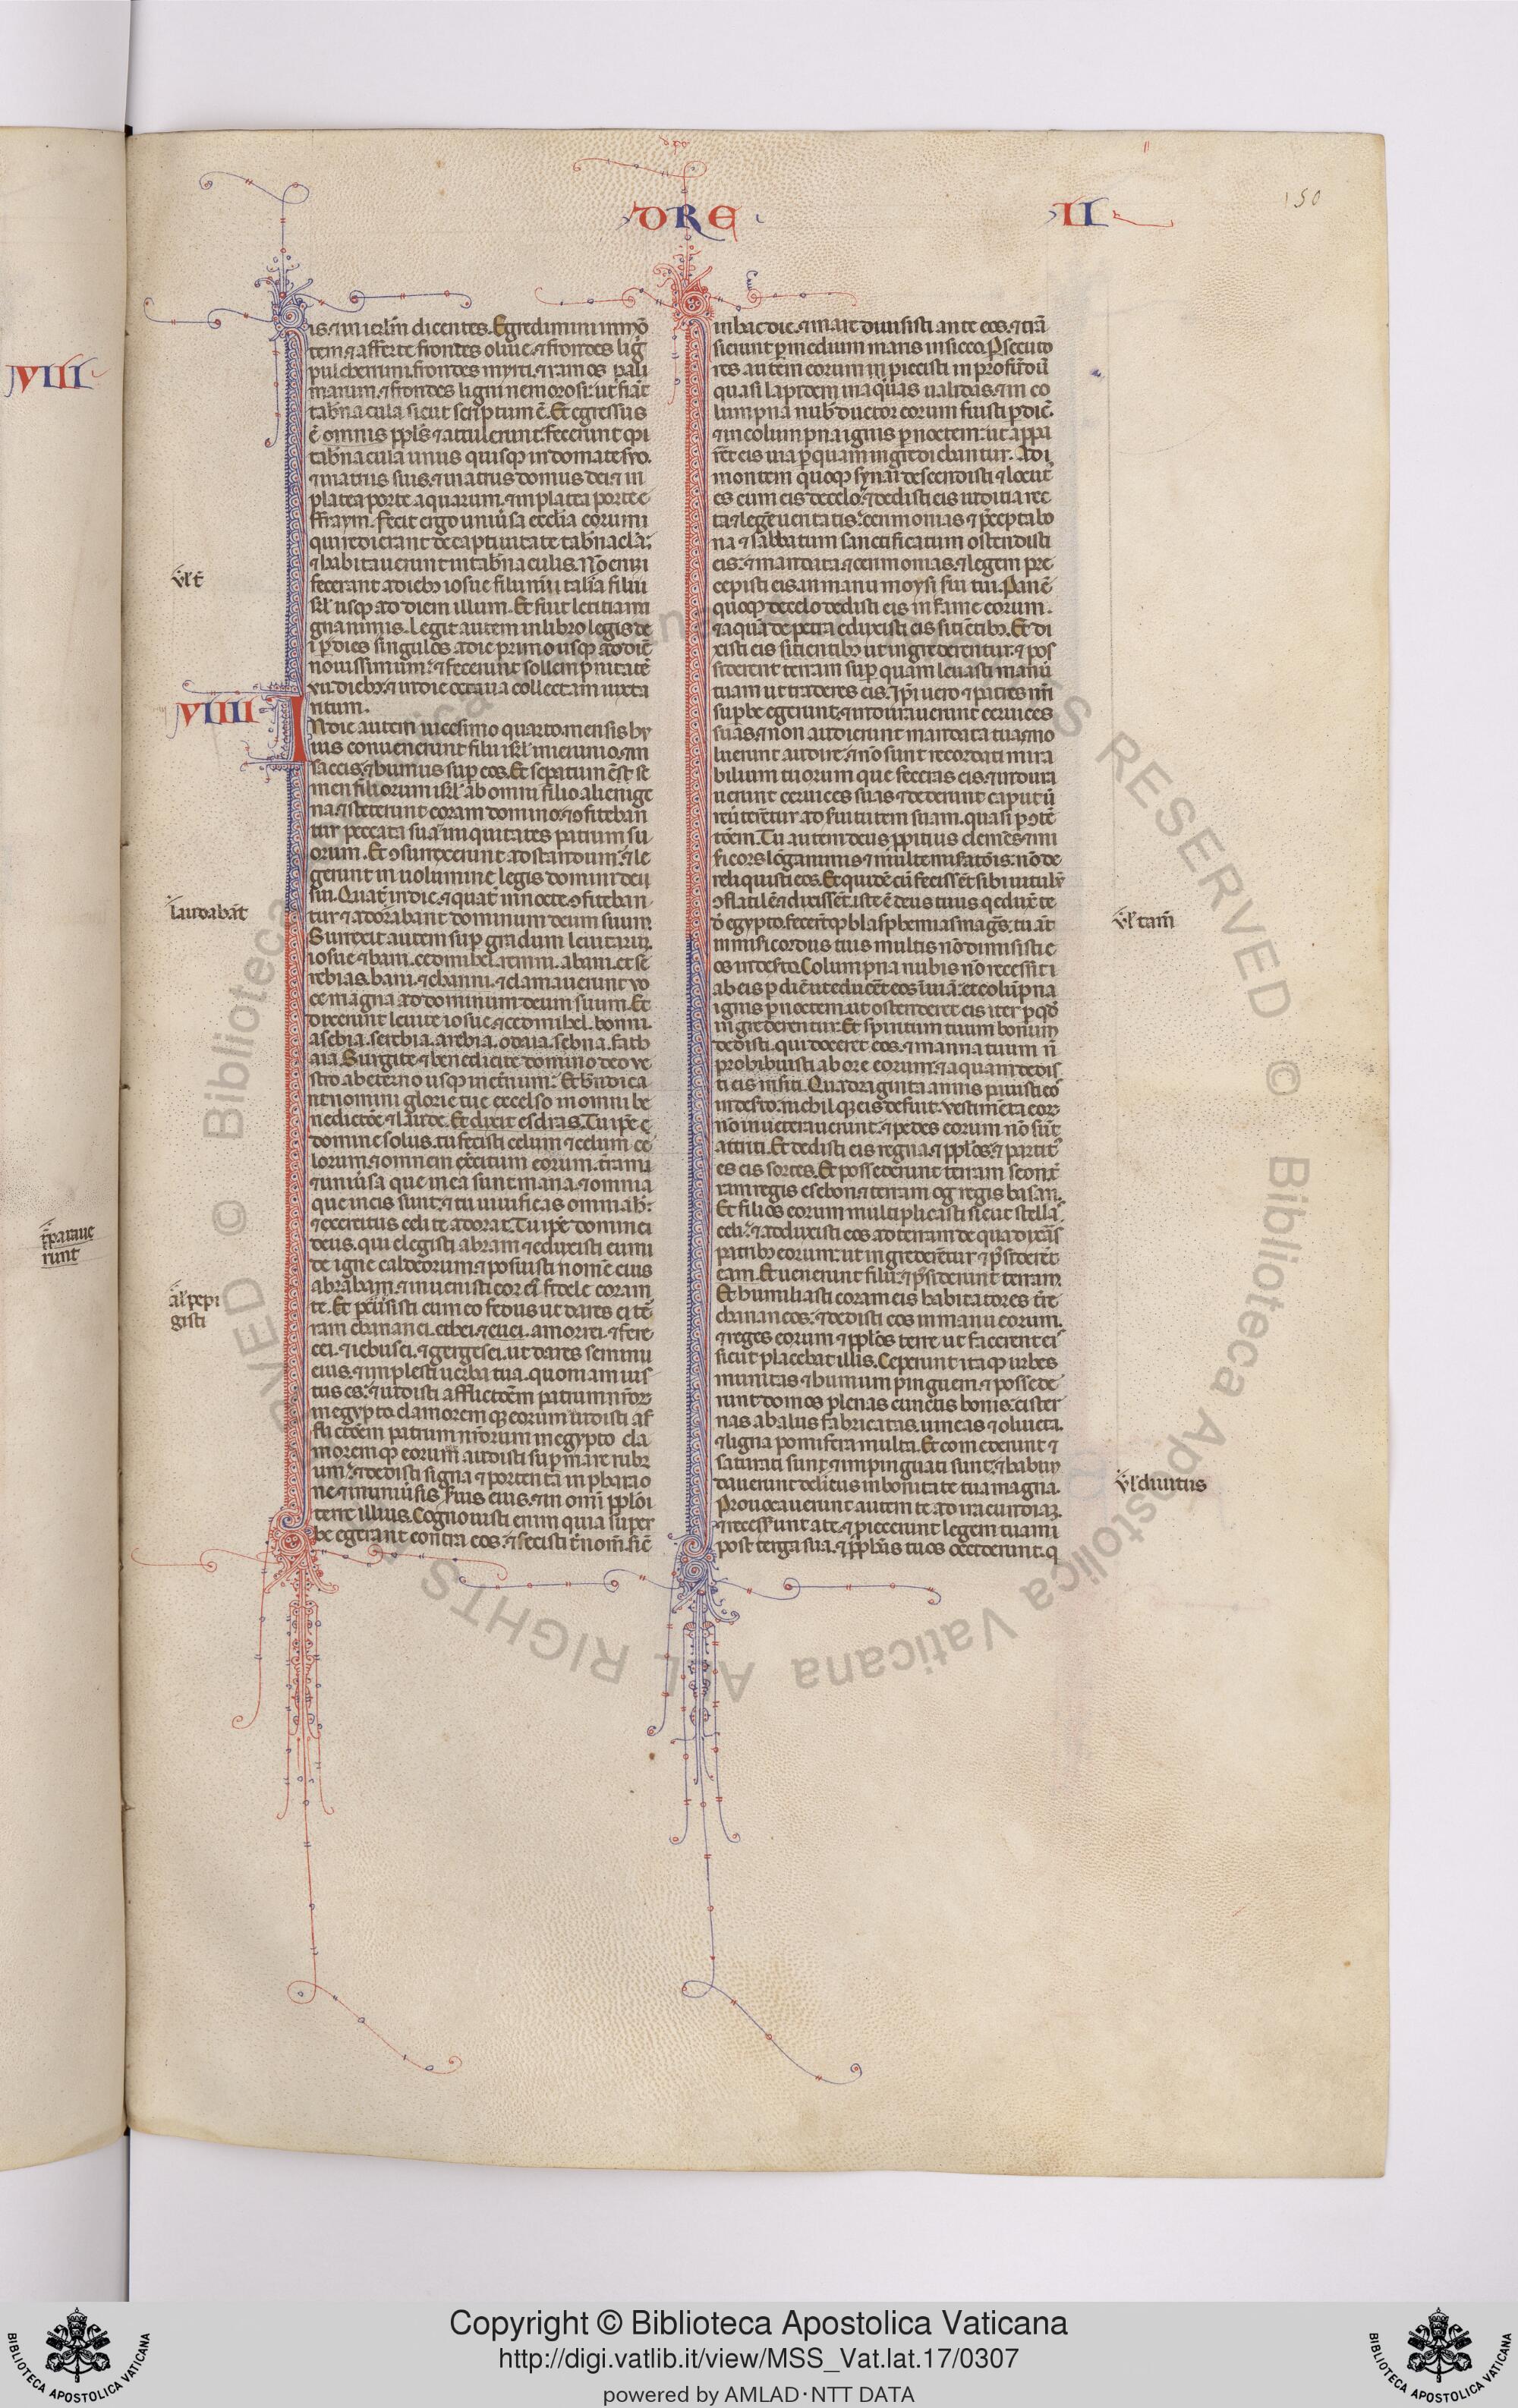 DRE
II
150
VIII
is. ⁊ in ierlm̄ dicentes. Egredimini in mō
tem ⁊ afferte frondes oliue. ⁊ frondes lig
pulcherrimi. frondes myrti. ⁊ ramos pal
marum. ⁊ frondes ligni nemorosi: ut fiāt
tab̄nacula sicut scriptum ē. Et egressus
ē omnis ppl̄s ⁊ attulerunt. feceruntq; s̄i
tab̄nacula unus quisq; in domate suo.
⁊ in atriis suis. ⁊ in atriis domus dei ⁊ in
platea porte aquarum. ⁊ in platea porte e
ffraym. Fecit ergo uniūsa eccl̄ia eorum
qui redierant de captiuitate tab̄nacl̄a:
⁊ habitauerunt in tab̄naculis. Nō enim
fecerant a dieb; iosue filii nun talia filii
isrl̄ usq; ad diem illum. Et fuit letitia m
gna nimis. Legit autem in libro legis de
i p̄ dies singulos a die primo usq; ad diē
nouissimum: ⁊ fecerunt sollempnitatē
vii. dieb;. ⁊ in die octaua collectam iuxta
ritum.
ul̄ t̄
VIIII
IN die autem uicesimo quarto mensis hu
ius conuenerunt filii isrl̄ in ieiunio. ⁊ in
saccis. ⁊ humus sup̄ eos. Et sepatum est se
men filiorum isrl̄ ab omni filio alienige
na. ⁊ steterunt coram domino: ⁊ ꝯfiteban
tur peccata sua ⁊ iniquitates patrum su
orum. Et ꝯsurrexerunt ad standum: ⁊ le
gerunt in uolumine legis domini dei
sui. Quat̄ in die. ⁊ quat̄ in nocte ꝯfiteban
tur ⁊ adorabant dominum deum suum.
laudabāt
Surrexit autem sup̄ gradum leuitarum
iosue ⁊ bani. cedmihel. remni. abani. et se
rebias. bani. ⁊ channi. ⁊ clamauerunt uo
ce magna ad dominum deum suum. Et
dixerunt leuite iosue ⁊ cedmihel. bonni.
asebia. serebia. arebia. odaia. sebna. fath
aia. Surgite ⁊ benedicite domino deo ve
stro ab eterno usq; in et̄num: Et b̄ndica
nt nomini glorie tue excelso in omni be
nedictōe ⁊ laude. Et dixit esdras. Tu ip̄e ē
domine solus. tu fecisti celum ⁊ celum ce
lorum. ⁊ omnem exc̄itum eorum. t̄ram
⁊ uniūsa que in ea sunt. maria ⁊ omnia
que in eis sunt: ⁊ tu uiuificas omnia h̄:
⁊ exercitus celi te adorat. Tu ip̄e domine
deus. qui elegisti abram ⁊ eduxisti eum
de igne caldeorum. ⁊ posuisti nomē eius
abraham. ⁊ inuenisti cor ei⁹ fidele coram
te. Et p̄cussisti cum eo fedus ut dares ei t̄
al̄ pepi
gisti
ram chananei. ethei. ⁊ euei. amorrei. ⁊ fere
cei. ⁊ iebusei. ⁊ gergesei. ut dares semini
eius. ⁊ implesti uerba tua. quoniam ius
tus es: ⁊ uidisti afflictōem patrum nr̄or
in egypto. clamoremq; eorum audisti af
flictōem patrum nr̄orum in egypto cla
moremq; eorum audisti sup̄ mare rubr
um: ⁊ dedisti signa ⁊ portenta in pharao
ne ⁊ in uniūsis s̄uis eius. ⁊ in omi pplo
terre illius. Cognouisti enim quia super
be egerant contra eos: ⁊ fecisti t̄ nom̄. sic̄
in hac die. ⁊ mare diuisisti ante eos. ⁊ trā
sierunt p̄ medium maris in sicco. Psecuto
res autem eorum proiecisti in profūdū
quasi lapidem in aquas ualidas. ⁊ in co
lumpna nub̄ ductor eorum fuisti p̄ diē.
⁊ in columpna ignis p̄ noctem: ut appa
rēt eis uia p̄ quam ingrediebantur. Ad
montem quoq; synai descendisti ⁊ locut⁹
es cum eis de celo: ⁊ dedisti eis iuditia rec
ta ⁊ legē ueritatis: cerimonias ⁊ p̄cepta bo
na ⁊ sabbatum sanctificatum ostendisti
eis: ⁊ mandata. ⁊ cerimonias. ⁊ legem pre
cepisti eis. in manu moysi s̄ui tui. Panē
quoq; de celo dedisti eis in fame eorum.
⁊ aquā de petra eduxisti eis sitiētib;. Et di
xisti eis sitientib; ut ingrederentur. ⁊ pos
siderent terram sup̄ quam leuasti manū
tuam ut traderes eis. Ip̄i uero ⁊ patres nr̄i
superbe egerunt. ⁊ indurauerunt ceruices
suas. ⁊ non audierunt mandata tua. ⁊ no
luerunt audire: ⁊ nō sunt recordati mira
bilium tuorum que feceras eis. ⁊ indura
uerunt ceruices suas ⁊ dederunt caput ū
reūterētur ad s̄uitutem suam. quasi p̄ ꝯtē
tōem. Tu autem deus ppitius clemēs ⁊ mi
sicors. lōganimis ⁊ multe mis̄atōis. nō de
reliquisti eos. Et quidē cū fecissēt sibi uitulū
ꝯflatilē. ⁊ dixissēt. iste ē deus tuus q̄ eduxit te
d̄ egypto. feceruntq; blasphemias mag̃s. tu aūt
ul̄ tam̄
in mis̄icordiis tuis multis nō dimisisti e
os in deserto. Columpna nubis nō recessit
ab eis p̄ diē ut educēt eos ī uiā. et colūpna
ignis p̄ noctem. ut ostenderet eis iter p̄ qd̄
ingrederentur. Et spiritum tuum bonum
dedisti. qui doceret eos. ⁊ manna tuum n̄
prohibuisti ab ore eorum: ⁊ aquam dedis
ti eis in siti. Quadraginta annis pauisti eo
in deserto. nichilq; eis defuit. vestimēta eor
nō inueterauerunt. ⁊ pedes eorum nō sūt
attriti. Et dedisti eis regna. ⁊ ppl̄os. ⁊ partit⁹
es eis sortes. Et possederunt terram seon. ⁊ t̄
ram regis esebon. ⁊ terram og regis basan.
Et filios eorum multiplicasti sicut stellas
celi. ⁊ adduxisti eos ad terram de qua dixas
patrib; eorum: ut ingrederētur ⁊ p̄siderēt
eam. Et uenerunt filii: ⁊ p̄siderunt terram
Et humiliasti coram eis habitatores t̄re
chananeos: ⁊ dedisti eos in manu eorum.
⁊ reges eorum ⁊ ppl̄os terre. ut facerent ei
sicut placebat illis. Ceperunt itaq; urbes
munitas ⁊ humum pinguem. ⁊ possede
runt domos plenas cunctis bonis: cister
nas ab aliis fabricatas. uineas ⁊ oliueta.
⁊ ligna pomifera multa. Et comederunt ⁊
saturati sunt. ⁊ impinguati sunt: ⁊ habun
dauerunt delitiis in bonitate tua magna.
ul̄ diuitiis
Prouocauerunt autem te ad iracundiaꝫ.
⁊ recesserunt a te. ⁊ piecerunt legem tuam
post terga sua. ⁊ pph̄as tuos occiderunt. q
Copyright © Biblioteca Apostolica Vaticana
http://digi.vatlib.it/view/MSS_Vat.lat.17/0307
powered by AMLAD·NTT DATA
BIBLIOTECA APOSTOLICA VATICANA
BIBLIOTECA APOSTOLICA VATICANA